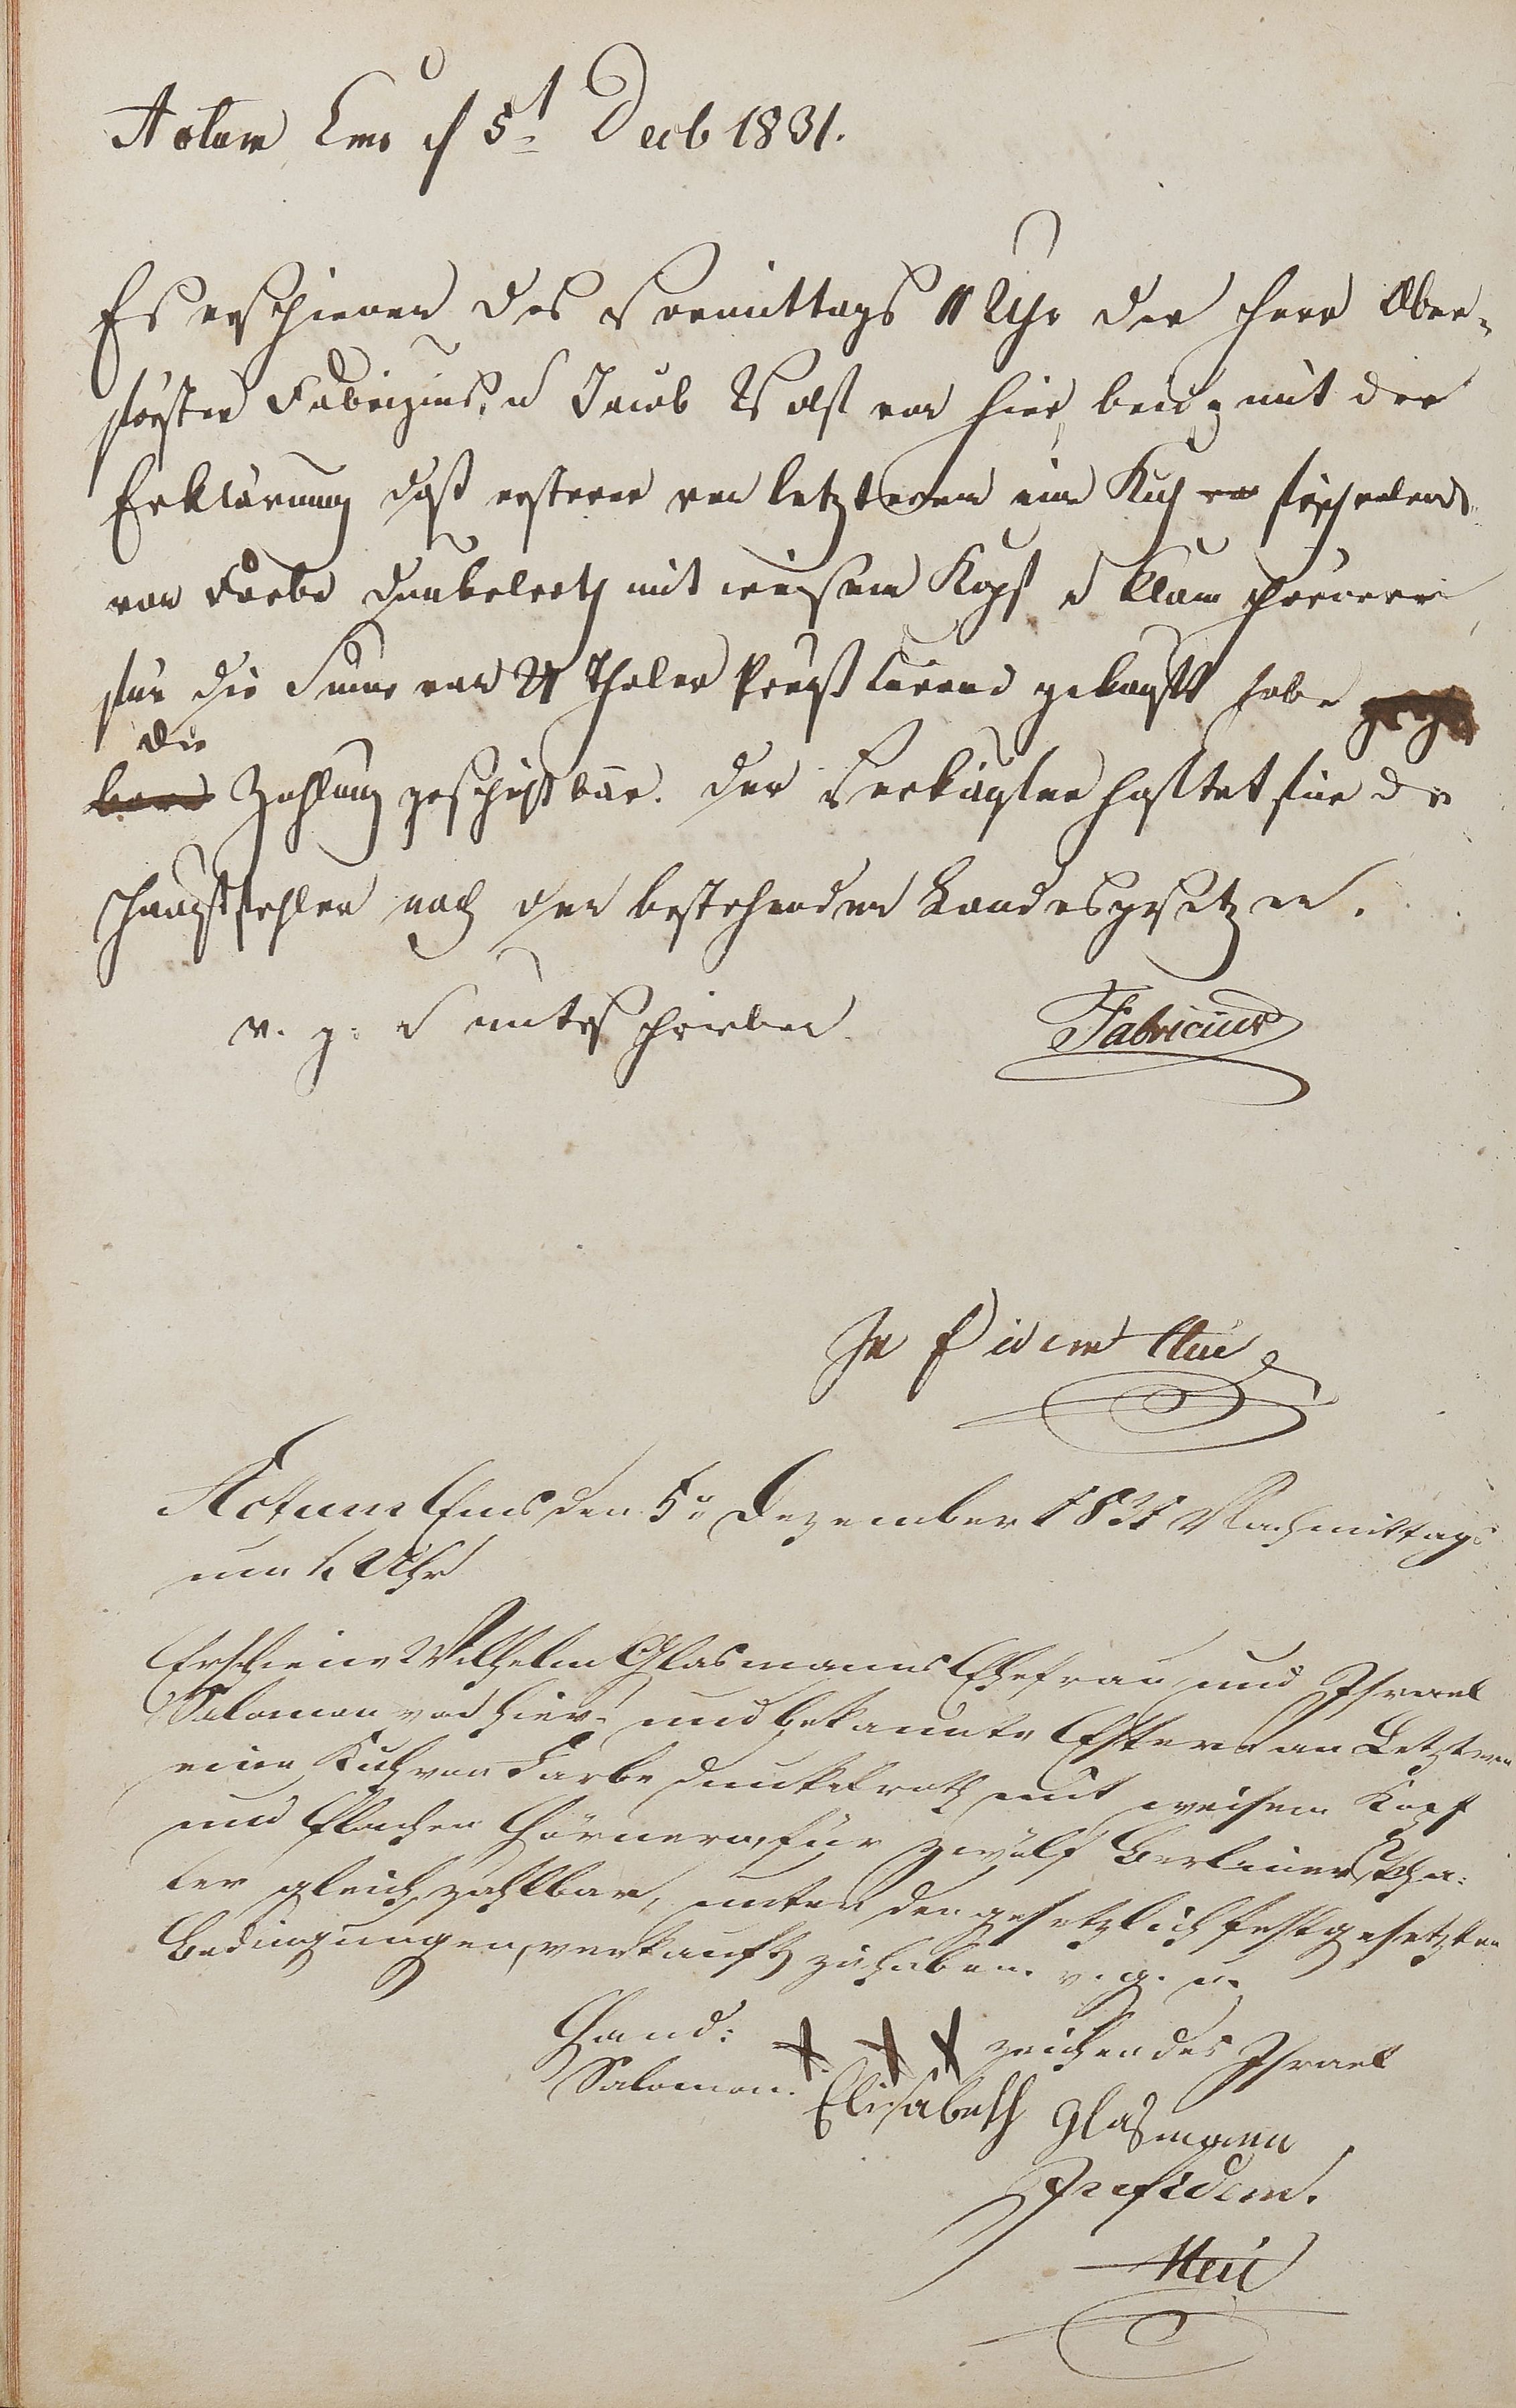 Actum Ems d 5t Decb 1831.
Es erschienen des Vormittags 11 Uhr der Herr Ober-
förster Fabrizius, u Jacob Wolf von hier, beide mit der
Erklärung daß ersterer von letzterem eine Kuh
von Farbe dunkelroth mit weisem Kopf u klam Hörnern
für die Sume von 21 Thaler Preuß Curend gekauft habe
die
Zahlung geschieht baar. Der Verkäufer haftet für die
Hauptfehler nach den bestehenden Landesgesetzen.
v. g. u unterschrieben
Fabricius
In fidem
Actum Ems den 5n Dezember 1831 Nachmittags
um 1 Uhr
Erschiene Wilhelm Glasmanns Ehefrau und Israel
Salomon von hier und bekannte Erstere an Letztern
eine Kuh von Farbe dunkelroth mit weisem Kopf
und flachen Hörnern, für zwölf Berliner Tha-
ler gleich zahlbar, unter den gesetzlich festgesetzten
Bedingungen, verkauft zu haben. v. g. u.
Hand: X X X zeichen des Israel
Salomon.
Elisabeth Glasmann
In fidem.